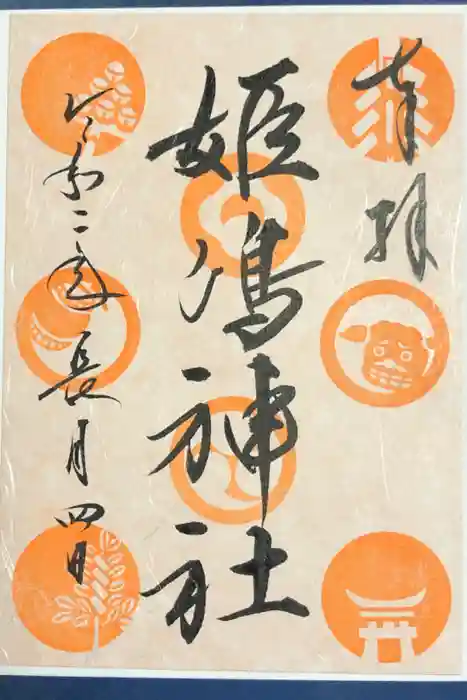 奉拝
姫嶋神社
令和二年長月四日